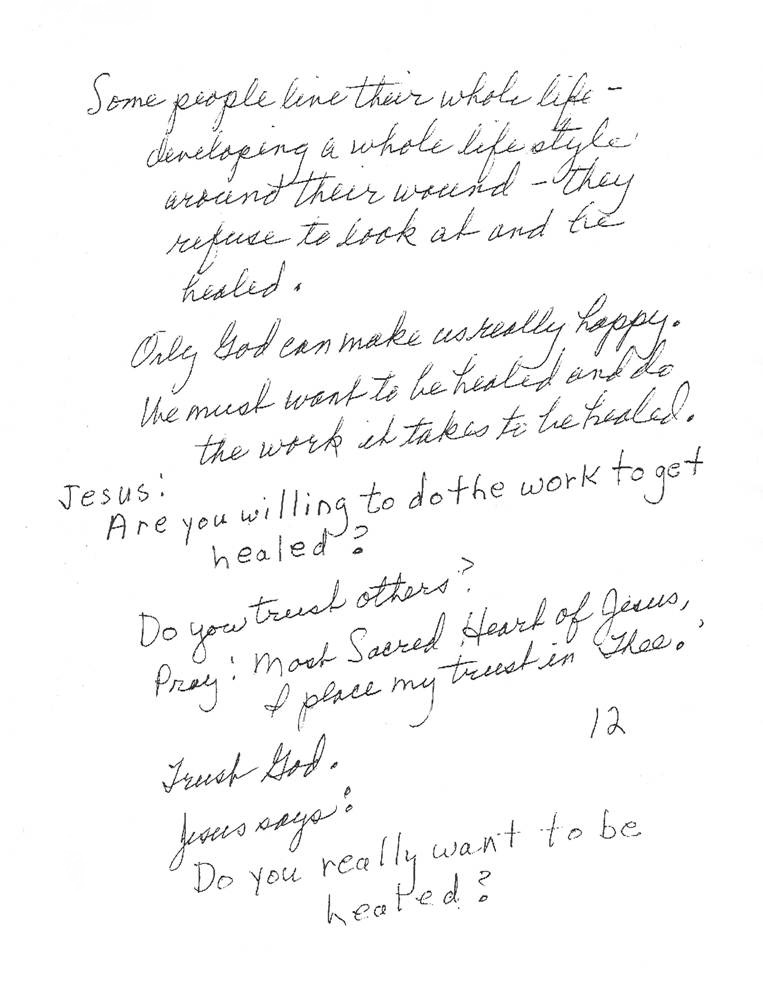 Some people live their whole life -
developing a whole life style
around their wound - they
refuse to look at and be
healed.
Only God can make us really happy.
We must want to be healed and do
the work it takes to be healed.
Jesus:
Are you willing to do the work to get
healed?
Do you trust others?
Pray: Most Sacred Heart of Jesus,
I place my trust in Thee.
12
Trust God.
Jesus says:
Do you really want to be
healed?